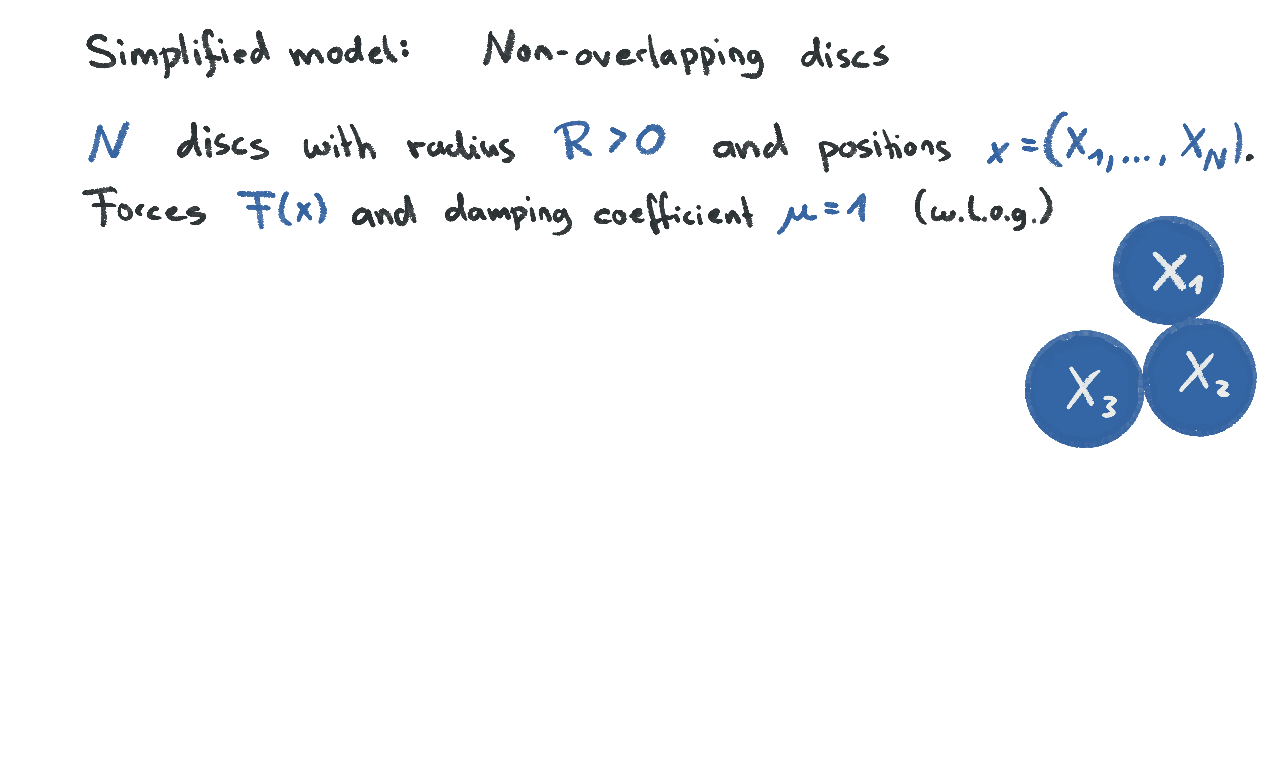 Simplified model: Non-overlapping discs
N discs with radius R > 0 and positions x = (X₁, ..., X_N).
Forces F(x) and damping coefficient μ = 1 (w.l.o.g.)
X₁
X₂
X₃